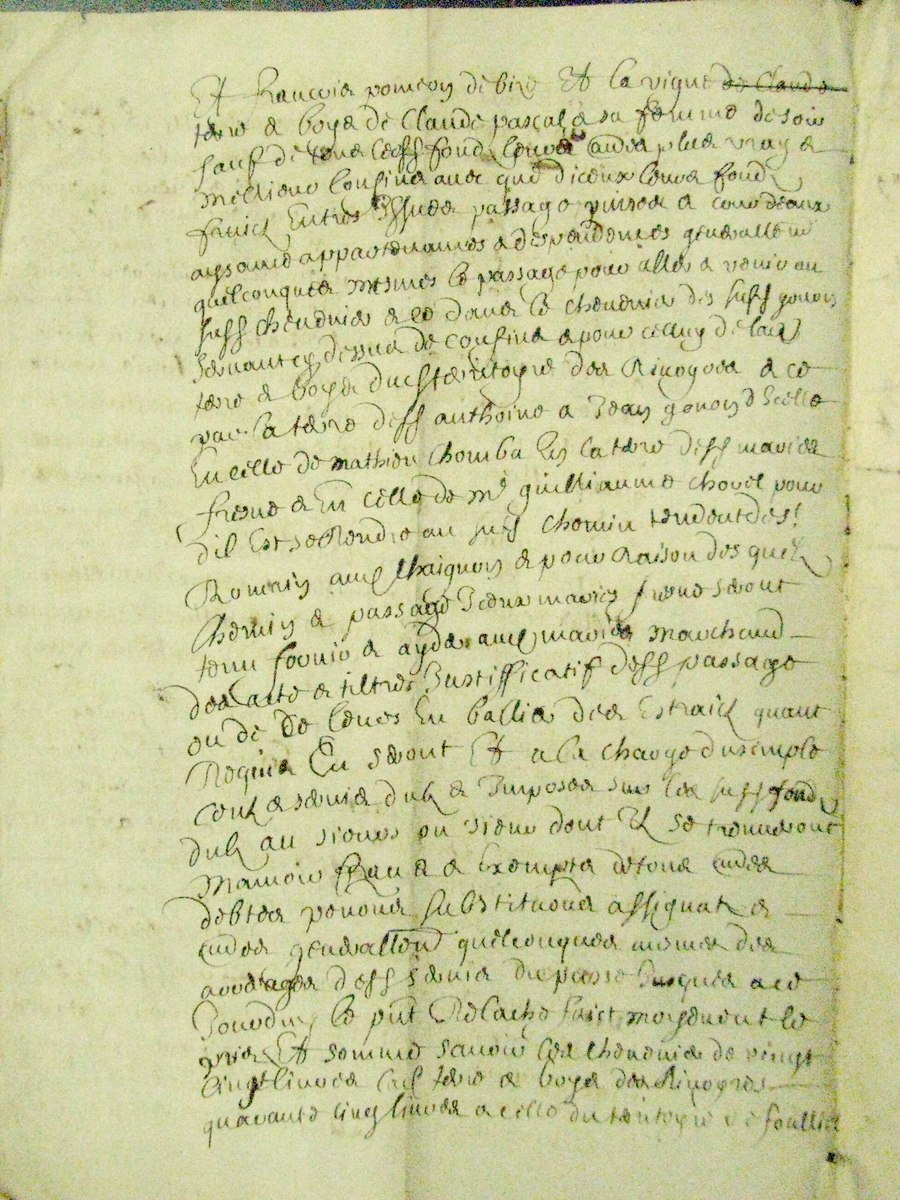 Et françois poncon de bize Et la vigne de Claude
terre & boys de Claude pascal & sa femme de soir
sauf de tous lesdss fondz leurs aultres plus vrays &
meillieurs confins avec que diceux leurs fondz
fruictz Entres Yssues passage prinses & cours deaux
aysance appartenances & despendences generallem
quelconques mesmes le passage pour aller & venir au
suss chenevier & ce dans le chenevier des suss gonon
servant cy dessus de confins & pour celluy de lad
terre & boys du territoyre des Rivoyres & ce
par la terre dess anthoine & Jean gonon d Icelle
En celle de mathieu Chomba En la terre dess mariés
frene & En celle de mr guilliaume Chovel pour
dil Est se Rendre au suss chemin tendent de st
Romain aux Chaignon & pour Raison des quelz
Chemin & passage Iceux mariés frene seront
tenu fornir & ayder aux mariés marchand
des acte & tiltres Justifficatif dess passage
ou de leurs En ballier des Extraictz quant
Requis En seront Et a la charge du simple
cens & servis dubz & Imposes sur les suss fondz
dubz au sieurs ou sieur dont Ilz se treuveront
mamoir francz & Exempte de tous aultres
debtes penons substitutions assignatz &
aultres generallem quelconques mesmes des
arrerages dess servis du passé Jusques a ce
Jourdhuy le pnt Relache faict moyenent le
pris Et somme savoir les chenevier de vingt
cinq livres lads terre & boys des Rivoyres
quarante cinq livres & celle du territoyre de foullie